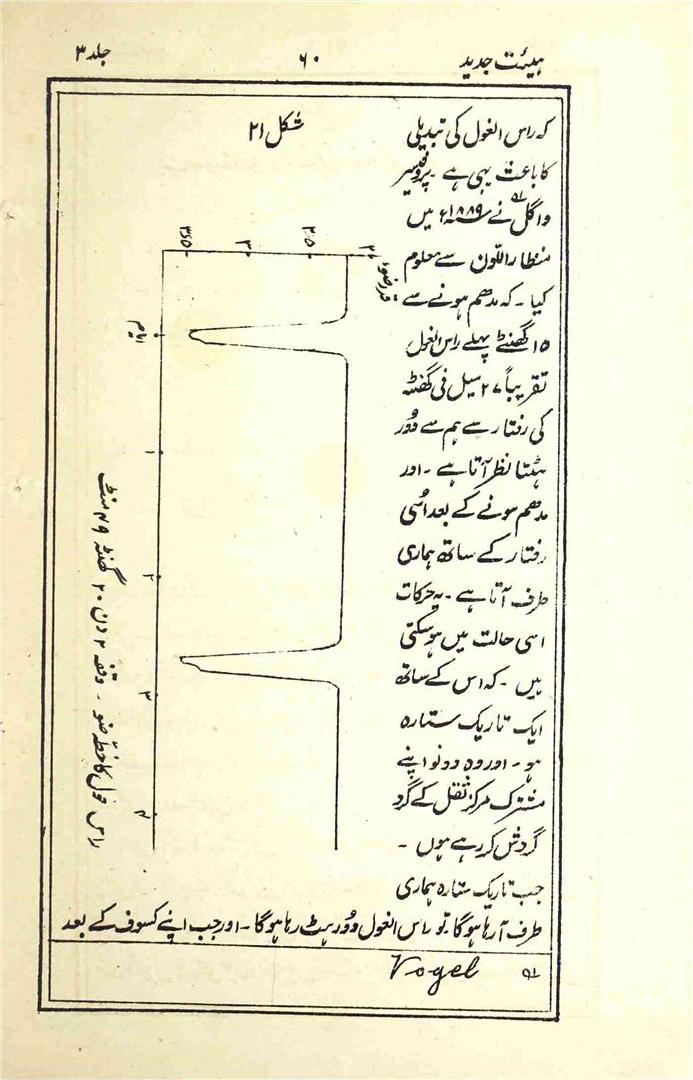 ہیئت جدید ۶۰ جلد ۳
کہ راس الغول کی تبدیلی
کا باعث یہی ہے ۔ پروفیسر
واگل۹۱ نے ۱۸۸۹ء میں
منظار اللّون سے معلوم
کیا ۔ کہ مدھم ہونے سے
۱۵ گھنٹے پہلے راس الغول
تقریباً ۲۷ میل فی گھنٹہ
کی رفتار سے ہم سے دُور
ہٹتا نظر آتا ہے ۔ اور
مدھم ہونے کے بعد اُسی
رفتار کے ساتھ ہماری
طرف آتا ہے ۔ یہ حرکات
اسی حالت میں ہو سکتی
ہیں ۔ کہ اس کے ساتھ
ایک تاریک ستارہ
ہو ۔ اور وہ دونو اپنے
مشترک مرکز ثقل کے گرد
گردش کر رہے ہوں ۔
جب تاریک ستارہ ہماری
طرف آ رہا ہوگا ۔ تو راس الغول دُور ہٹ رہا ہوگا ۔ اور جب اپنے کسوف کے بعد
شکل ۲۱
قدر ضوء
۳۶۵ ۳ ۲۵ ۲
ایام
۱
۲
۳
۴
راس غول کا خطہ ضو ۔ وقفہ ۲ دن ۲۰ گھنٹہ ۴۹ منٹ
۹۱ Vogel